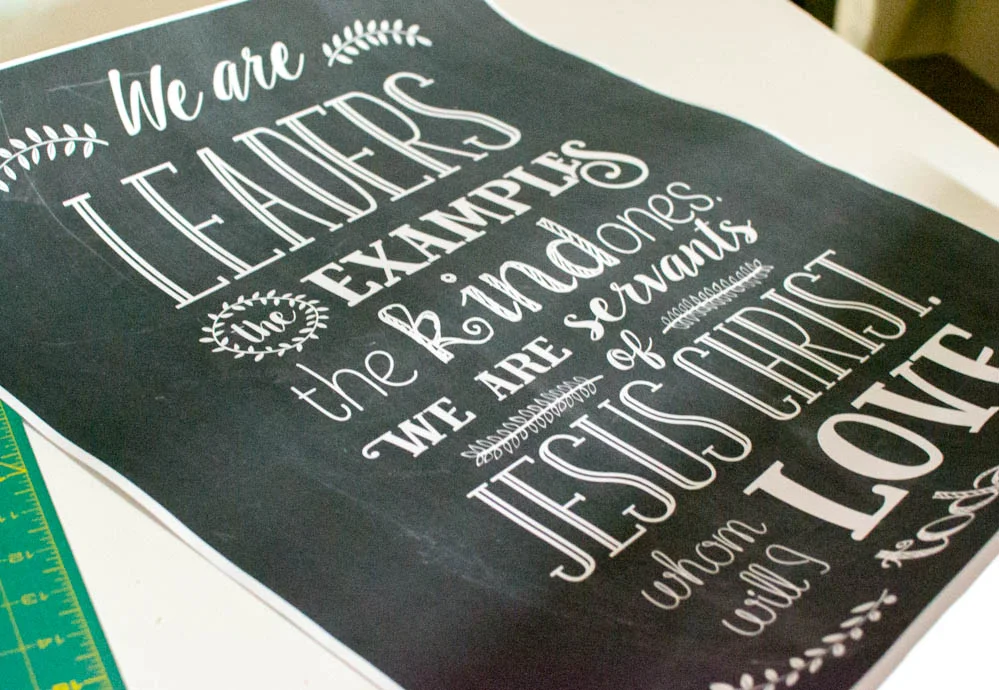 We are
LEADERS
the EXAMPLES
the kind ones.
WE ARE servants
of
JESUS CHRIST.
whom
will I
LOVE